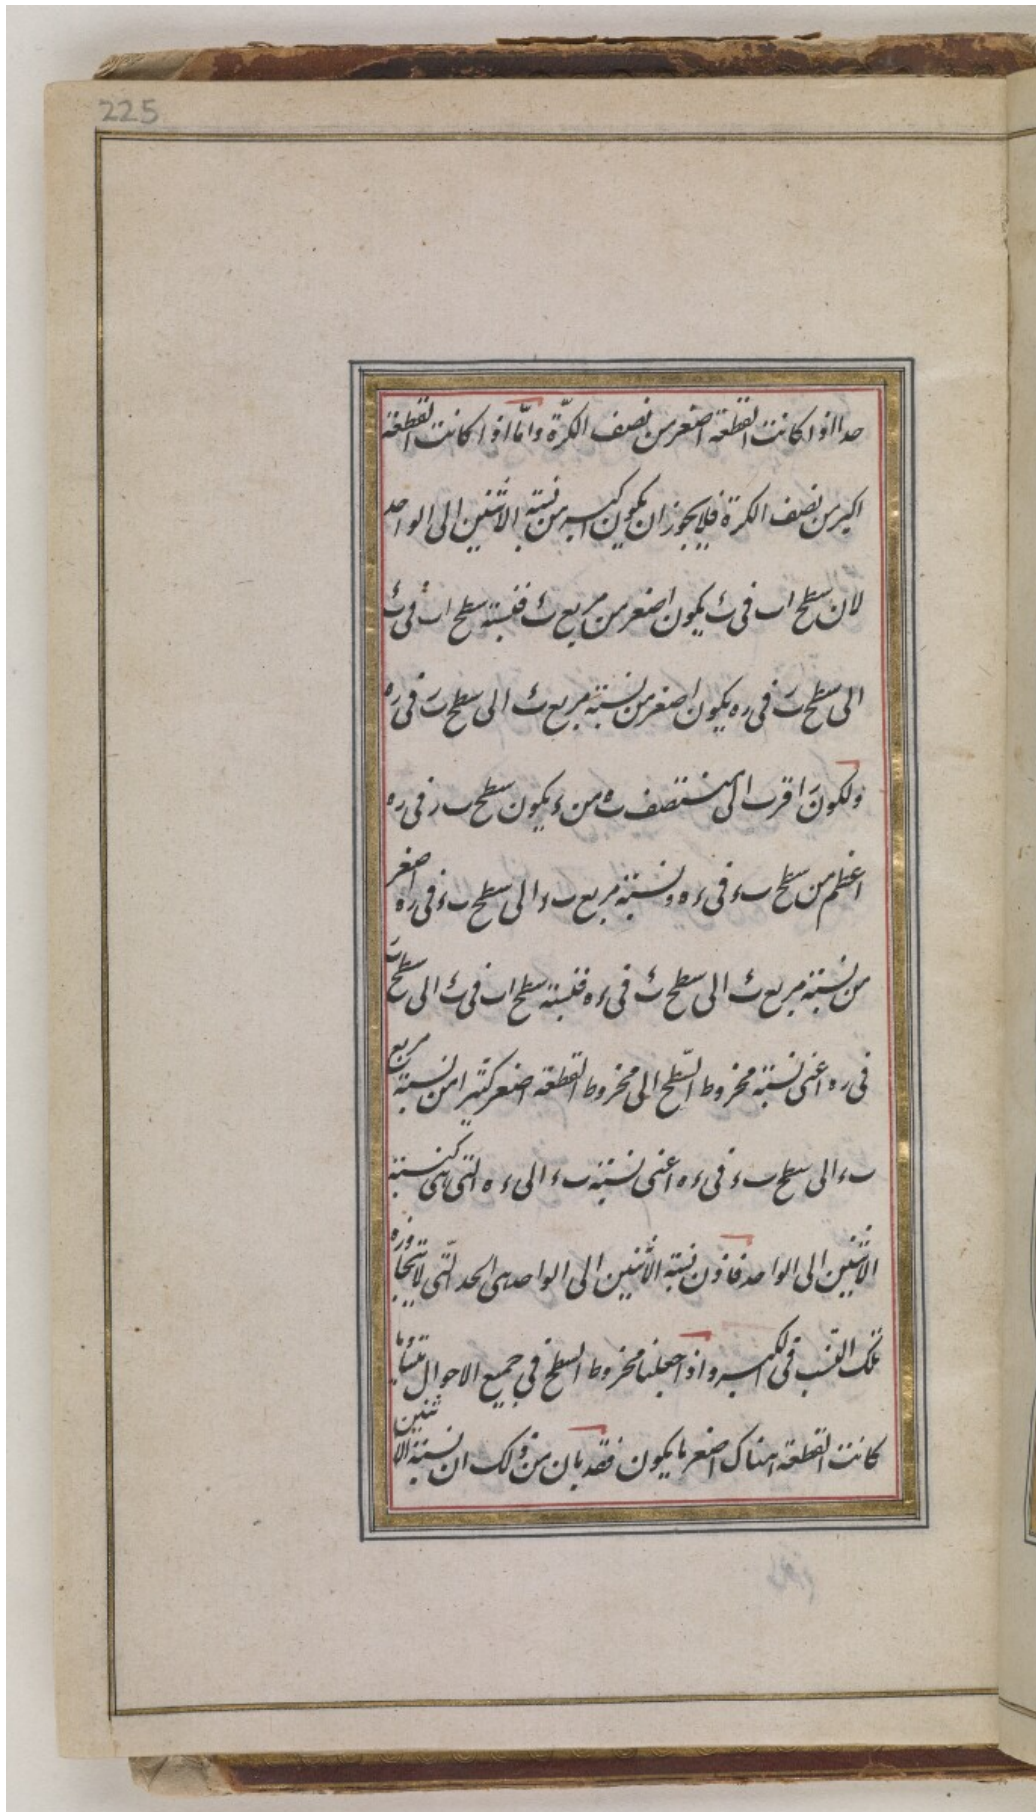 225
هذا اذا كانت القطعة اصغر من نصف الكرّة وامّا اذا كانت القطعة
اكبر من نصف الكرة فلا يجوز ان يكون اكبر من نسبة الاثنين الى الواحد
لان سطح اب في ٮء يكون اصغر من مربع ٮء فنسبة سطح اب في ٮء
الى سطح ٮر في ره يكون اصغر من نسبة مربع ٮء الى سطح ٮر في ره
ولكون ر اقرب الى منتصف ٮه من ء يكون سطح ٮر في ره
اعظم من سطح ٮء في ءه ونسبة مربع ٮء الى سطح ٮء في ره اصغر
من نسبة مربع ٮء الى سطح ٮء في ءه فنسبة سطح اب في ٮء الى سطح ٮر
في ره اعنى نسبة مخروط السّطح الى مخروط القطعة اصغر كثيرا من نسبة مربع
ٮء الى سطح ٮء في ءه اعنى نسبة ٮء الى ءه التى هى كنسبة
الاثنين الى الواحد فاذن نسبة الاثنين الى الواحد هى الحد الّتى لا يتجاوزه
تلك النسب فى الكبر واذا جعلنا مخروط السطح في جميع الاحوال متساويا
كانت القطعة هناك اصغر ما يكون فقد بان من ذلك ان نسبة الاثنين